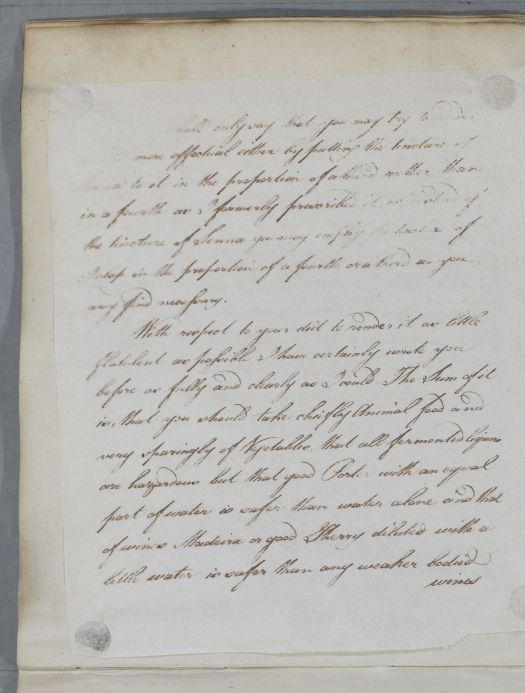 only say that you may try to render
more effectual either by putting the tincture of
to it in the proportion of a third rather than
in a fourth as I formerly prescribed it or instead of
the tincture of Senna you may employ the tincture of
Jalap in the proportion of a fourth or a third as you
may find necessary.
With respect to your diet to render it as little
flatulent as possible I have certainly wrote you
before as fully and clearly as I could. The Sum of it
is, that you should take chiefly Animal food and
very sparingly of Vegetables, that all fermented liquors
are hazardous but that good Porter with an equal
part of water is safer than water alone and that
of wines Madeira or good Sherry diluted with a
little water is safer than any weaker bodied
wines